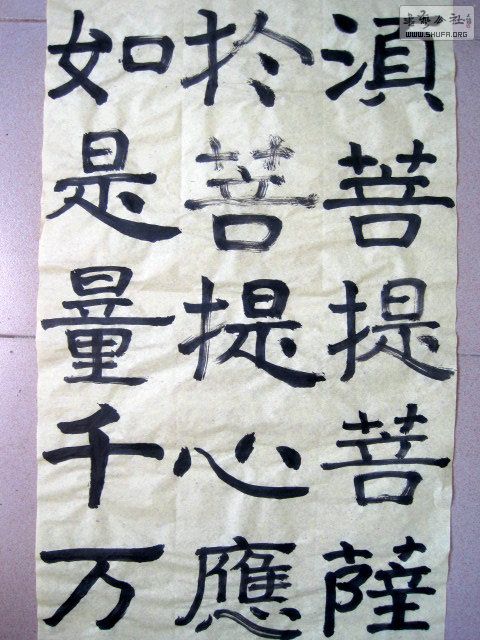 湏菩提菩薩
於菩提心應
如是量千万
WWW.SHUFA.ORG